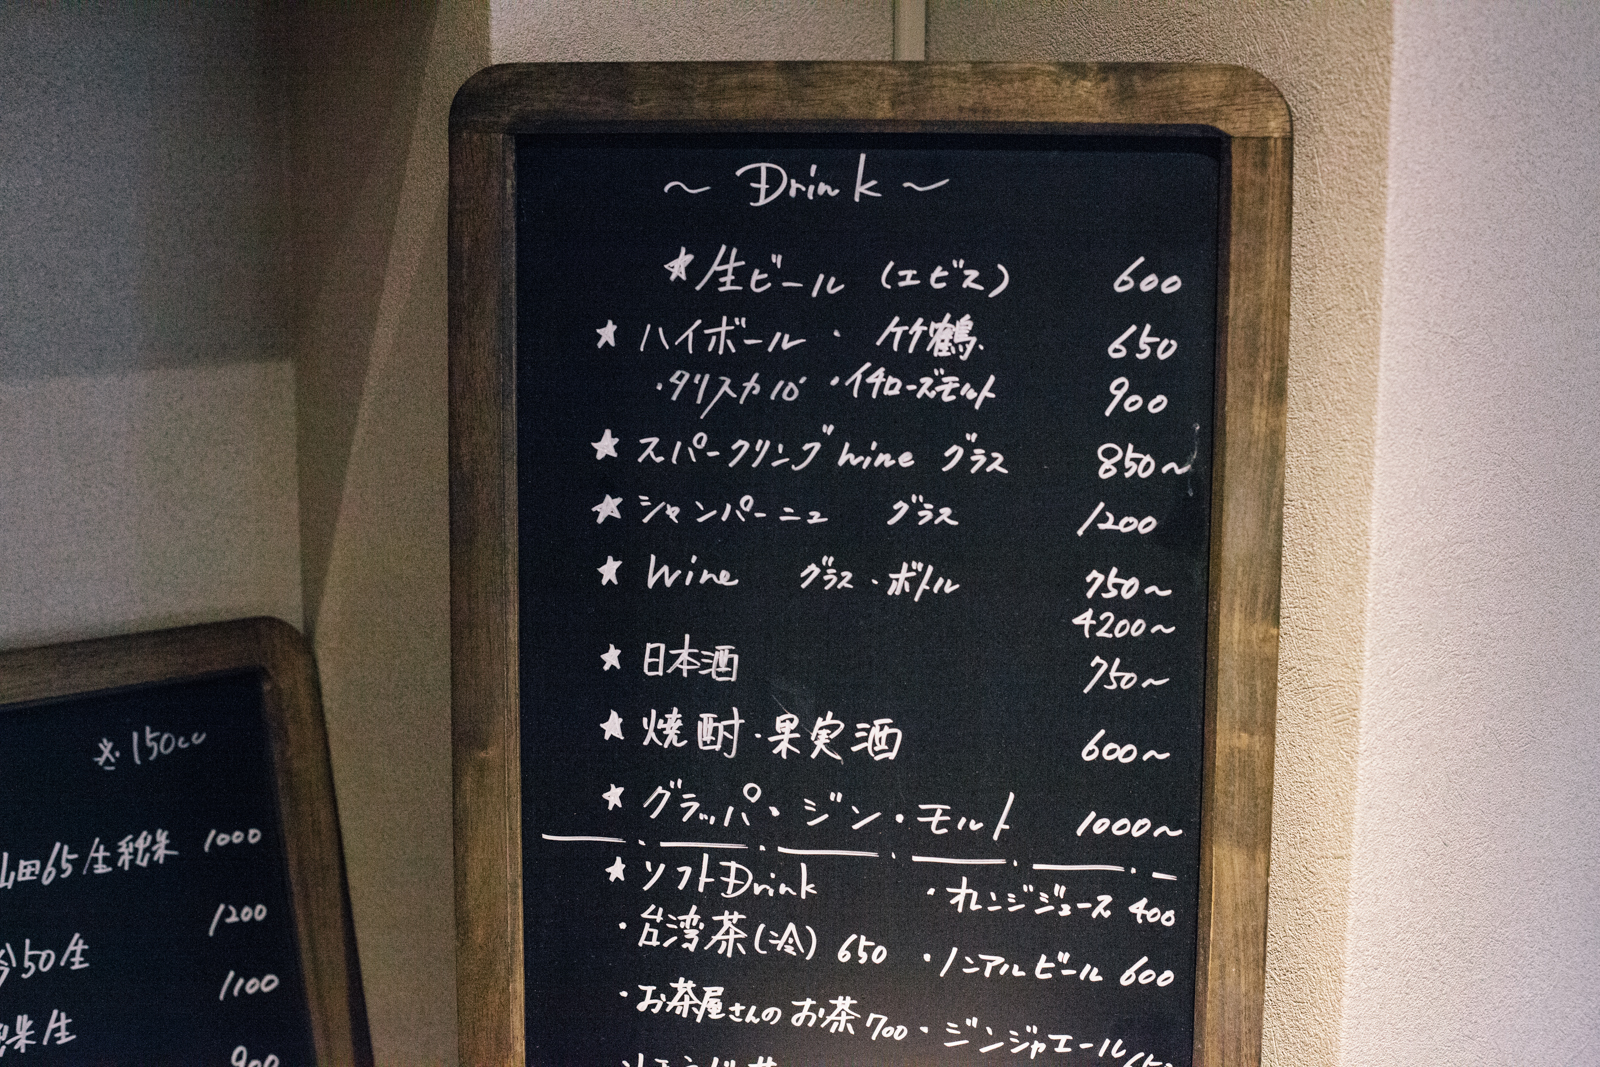 ~ Drink ~
★生ビール (エビス) 600
★ ハイボール ・ 竹鶴 650
・タリスカー10 ・イチローズモルト 900
★ スパークリング wine グラス 850~
★ シャンパーニュ グラス 1200
★ Wine グラス・ボトル 750~
4200~
★ 日本酒 750~
★ 焼酎・果実酒 600~
★ グラッパ・ジン・モルト 1000~
★ ソフトDrink ・オレンジジュース 400
・台湾茶(冷) 650 ・ノンアルビール 600
・お茶屋さんのお茶 700 ・ジンジャエール
※150cc
山田65生純米 1000
1200
50生
1100
純米生
900